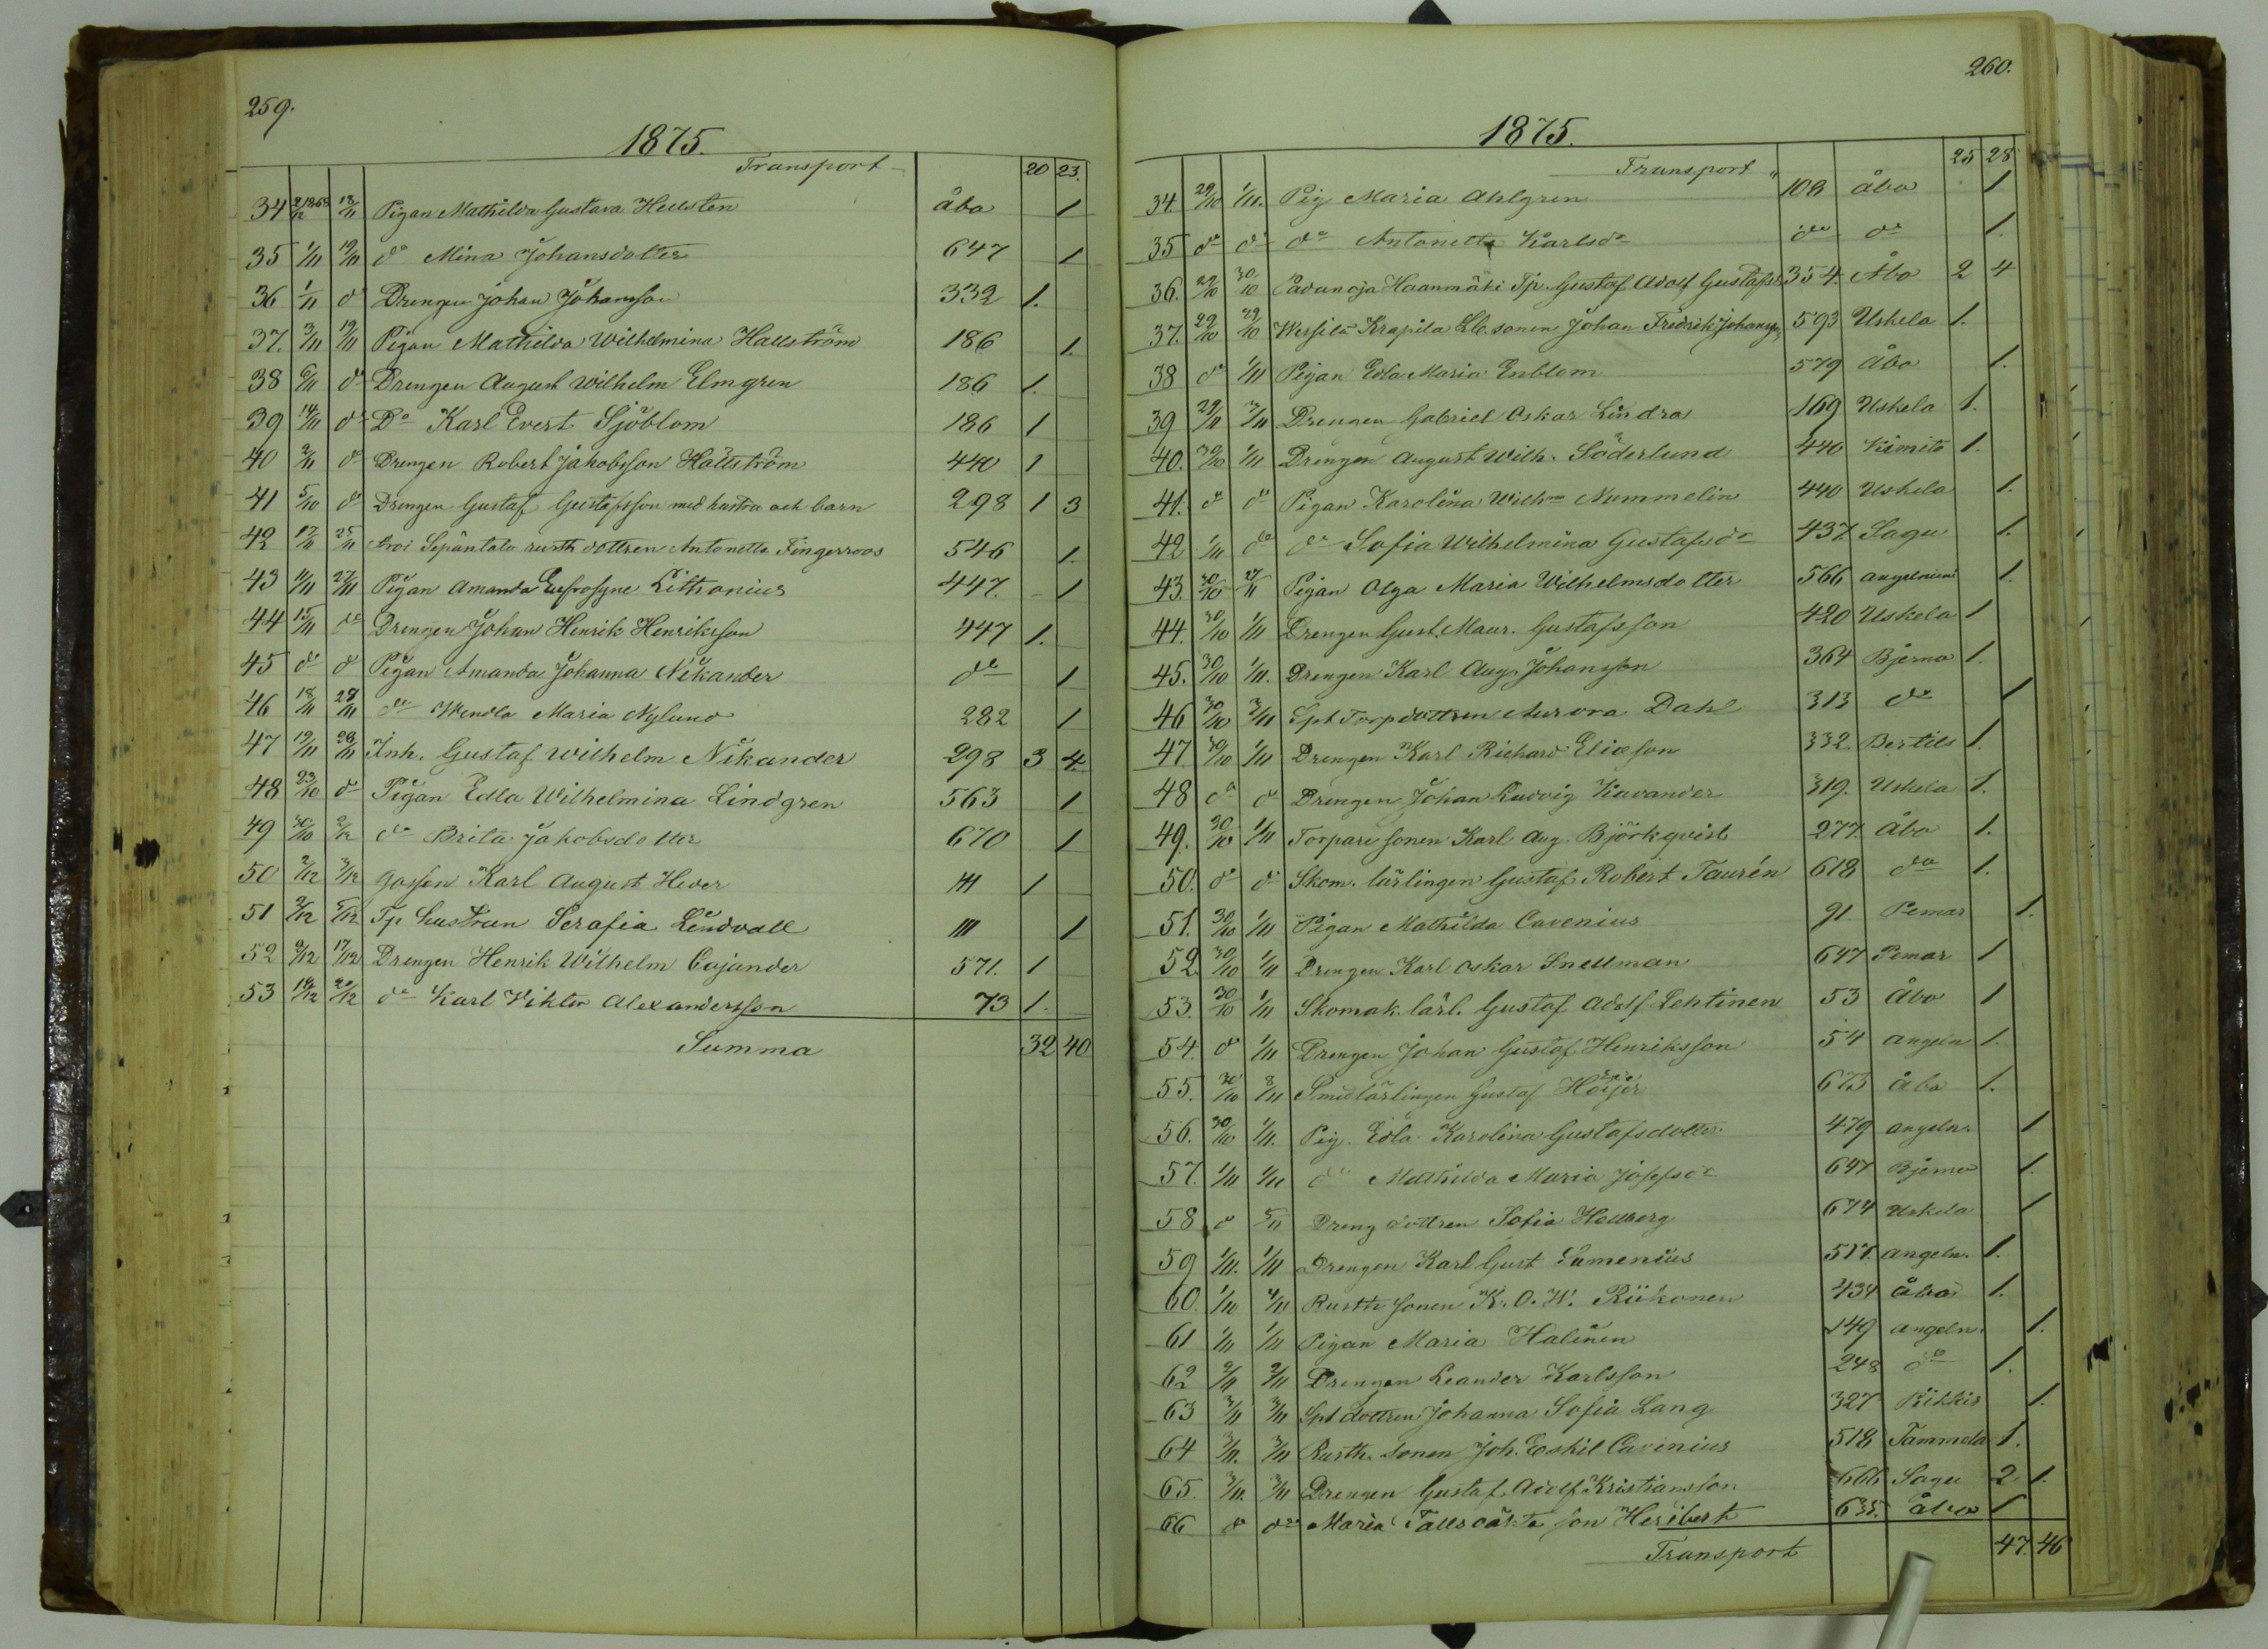 259.
1875.
Transport 20 23.
34 2/12 1868 18/11 Pigan Mathilda Gustava Hellsten åbo 1
35 1/11 19/11 do Mina Johansdotter 647 1
36 1/11 do Drengen Johan Johansson 332 1.
37. 3/11 19/11 Pigan Mathilda Wilhelmina Hallström 186 1.
38 6/11 do Drengen August Wilhelm Elmgren 186 1.
39 14/11 do Do Karl Evert Sjöblom 186 1
40 2/11 do Drengen Robert Jakobsson Hällström 440 1
41 5/10 do Drengen Gustaf Gustafsson med hustru och barn 298 1 3
42 17/11 25/11 Sepäntalo rusth dottren Antonetta Fingerroos 546 1.
43 11/11 27/11 Pigan Amanda Eufrosyne Lithonius 447. 1
44 15/11 do Drengen Johan Henrik Henriksson 447 1.
45 do do Pigan Amanda Johanna Nikander do 1
46 18/11 28/11 do Wendla Maria Nylund 282 1
47 19/11 28/11 Inh. Gustaf Wilhelm Nikander 298 3 4
48 23/10 do Pigan Edla Wilhelmina Lindgren 563 1
49 30/10 2/12 do Brita Jakobsdotter 670 1
50 2/12 3/12 Gossen Karl August Heder 111 1
51 2/12 5/12 Tp hustrun Serafia Lindvall 111 1
52 9/12 17/12 Drengen Henrik Wilhelm Cajander 571. 1
53 18/12 20/12 do Karl Viktor Alexandersson 73 1.
Summa 32 40
260.
1875.
Transport " 25 28
34. 29/10 1/11. Pig Maria Ahlgren 108 åbo 1
35 do do do Antonetta Karlsdr do do 1
36. 29/10 30/10 Haanmäki Tp. Gustaf Adolf Gustafss 354. Åbo 2 4
37. 29/10 29/10 Krapila Lb. sonen Johan Fredrik Johanss 593 Uskela 1.
38 do 1/11 Pigan Edla Maria Enblom 579 åbo 1.
39 29/11 3/11 Drengen Gabriel Oskar Lindra 169 Uskela 1.
40. 30/10 1/11 Drengen August Wilh. Söderlund 440 Kimito 1.
41. do do Pigan Karolina Wilhna Nummelin 440 Uskela 1.
42 1/11 do do Sofia Wilhelmina Gustafsdr 437 Sagu 1.
43. 30/10 27/11 Pigan Olga Maria Wilhelmsdotter 566 angelniemi 1.
44. 30/10 1/11 Drengen Gust. Maur. Gustafsson 420 Uskela 1
45. 30/10 1/11. Drengen Karl Aug. Johansson 364 Bjerno 1.
46 30/10 3/11 Spt Torpdottren Aurora Dahl 313 do 1
47. 30/10 1/11 Drengen Karl Richard Eliasson 332. Bertils 1.
48 do do Drengen Johan Ludvig Kavander 319. Uskela 1.
49. 30/10 1/11 Torpare sonen Karl Aug. Björkqvist 277 åbo 1.
50. do do Skom. lärlingen Gustaf Robert Taurén 618 do 1.
51. 30/10 1/11 Pigan Mathilda Cavenius 91 Pemar 1.
52. 30/10 1/11 Drengen Karl Oskar Snellman 647 Pemar 1
53. 30/10 1/11 Skomak. lärl. Gustaf Adolf Lehtinen 53 Åbo 1
54. do 1/11 Drengen Johan Gustaf Henriksson 54 angeln 1.
55. 30/10 8/11 Smedlärlingen Gustaf Höijer 673 åbo 1.
56. 30/10 1/11. Pig. Edla Karolina Gustafsdotter 479 angeln. 1
57. 1/11 1/11 do Mathilda Maria Josefsdr 647 Bjerno 1.
58 do 5/11 Dreng dottren Sofia Hellberg 674 Uskela 1
59 1/11. 1/11 Drengen Karl Gust Lumenius 517. angeln. 1.
60. 1/11 4/11 Rusth sonen K. O. W. Riikonen 434 åbo 1.
61 1/11 1/11 Pigan Maria Halinen 149 angeln. 1.
62 2/11 2/11 Drengen Leander Karlsson 248 do 1.
63 3/11 3/11 Spt dottren Johanna Sofia Lang 327 Kikkis 1.
64 3/11. 3/11 Rusth. sonen Joh. Eskil Cavenius 518 Tammela 1.
65. 3/11. 3/11 Drengen Gustaf Adolf Kristiansson 666 Sagu 2 1.
66 do do Maria son Heribert 635. åbo 1
Transport 47. 46